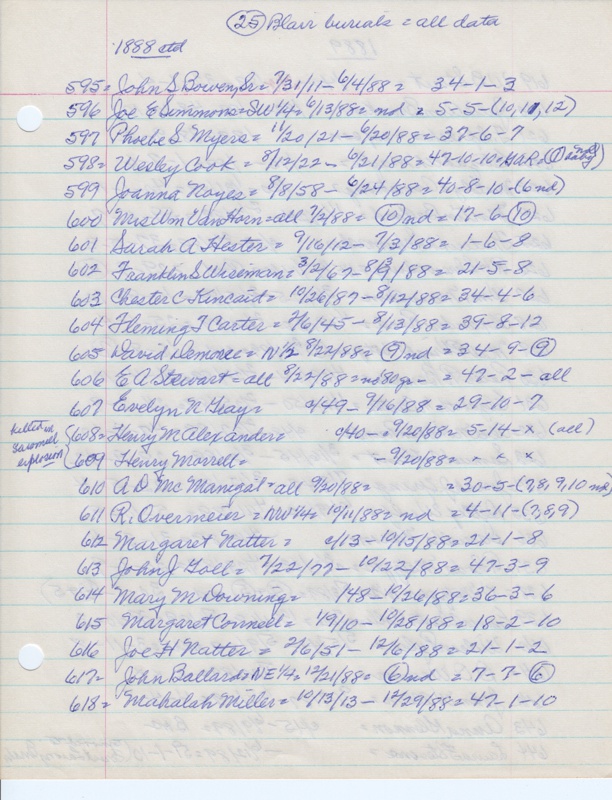 (25) Blair burials = all data
1888 ctd
595 = John S Bowen, Sr = 7/31/11 - 6/4/88 = 34-1-3
596 Joe E Simmons = SW 1/4 = 6/13/88 = nd = 5-5-(10, 11, 12)
597 Phoebe S. Myers = 11/20/21 - 6/20/88 = 37-6-7
598 = Wesley Cook = 8/12/22 - 6/21/88 = 47-10-10 = GAR =
599 Joanna Noyes = 8/8/58 - 6/24/88 = 40-8-10 - (6 nd)
600 Mrs Wm Van Horn = all 7/2/88 = (10) nd = 17-6-(10)
601 Sarah A Hester = 9/16/12 - 7/3/88 = 1-6-8
602 Franklin S Wiseman = 3/2/67 - 8/ /88 = 21-5-8
603 Chester C Kincaid = 10/26/87 - 8/12/88 = 34-4-6
604 Fleming T Carter = 2/6/45 - 8/13/88 = 39-8-12
605 David Demoree = N 1/2 8/22/88 = (9) nd = 34-9-(9)
606 E A Stewart = all 8/22/88 = = 47-2-all
607 Evelyn N = c/49 - 9/16/88 = 29-10-7
killed in
explosion
608 = Henry M Alexander = c/40 - 9/20/88 = 5-14-x (all)
609 Henry Morrell = - 9/20/88 = " x x
610 A D McManigal = all 9/20/88 = = 30-5-(7,8,9,10 nd)
611 R. Overmeier = NW 1/4 = 10/11/88 = nd = 4-11-(7,8,9)
612 Margaret Natter = c/13 - 10/15/88 = 21-1-8
613 John J Toll = 7/22/77 - 10/22/88 = 47-3-9
614 Mary M Downing = /48 - 10/26/88 = 36-3-6
615 Margaret Connell = 1/9/10 - 10/28/88 = 18-2-10
616 Joe H Natter = 2/6/51 - 12/6/88 = 21-1-2
617 = John Ballard = NE 1/4 = 12/21/88 = (6) nd = 7-7-(6)
618 = Mahalah Miller = 10/13/13 - 12/29/88 = 47-1-10